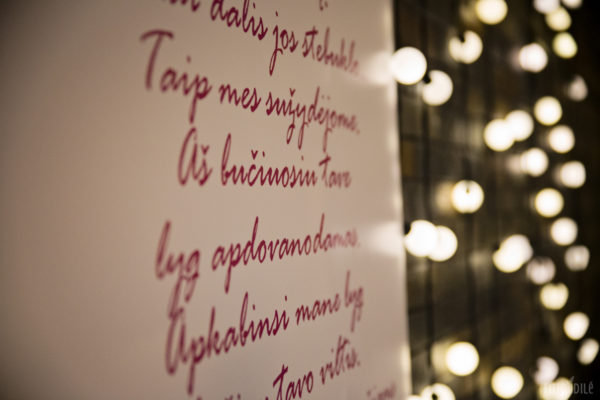 dalis jos stebuklo
Taip mes sužydėjome.
Aš bučiuosiu tave
lyg apdovanodamas.
Apkabinsi mane lyg
tavo viltis.